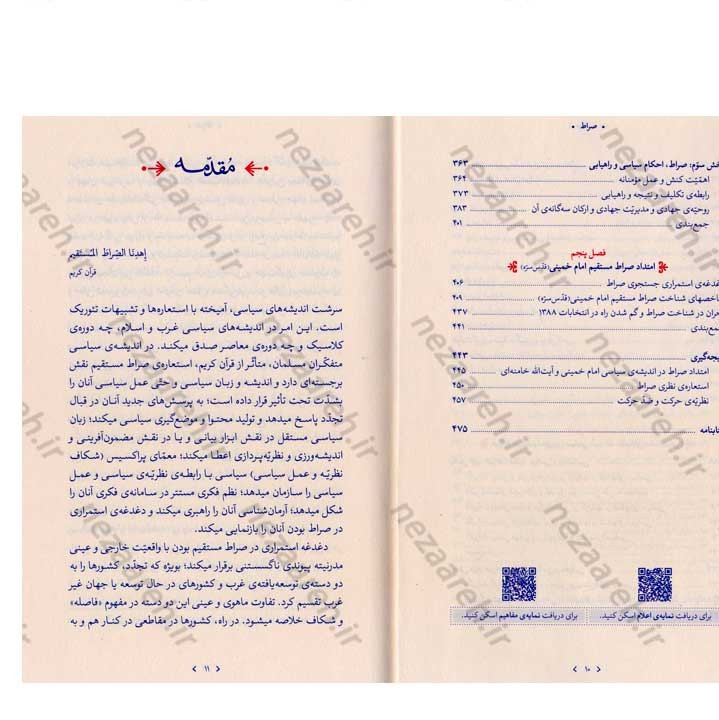 • صراط •
بخش سوّم: صراط، احکام سیاسی و راهیابی ۳۶۳
اهمّیت کنش و عمل مؤمنانه ۳۶۴
رابطه‌ی تکلیف و نتیجه و راهیابی ۳۷۳
روحیّه‌ی جهادی و مدیریّت جهادی و ارکان سه‌گانه‌ی آن ۳۸۳
جمع‌بندی ۴۰۱
فصل پنجم
امتداد صراط مستقیم امام خمینی (قدّس سرّه)
دغدغه‌ی استمراری جستجوی صراط ۴۰۶
شاخصهای شناخت صراط مستقیم امام خمینی (قدّس سرّه) ۴۰۹
بحران در شناخت صراط و گم شدن راه در انتخابات ۱۳۸۸ ۴۳۷
جمع‌بندی ۴۴۱
نتیجه‌گیری ۴۴۳
امتداد صراط در اندیشه‌ی سیاسی امام خمینی و آیت‌الله خامنه‌ای ۴۴۵
استعاره‌ی نظری صراط ۴۵۰
نظریّه‌ی حرکت و ضدّ حرکت ۴۵۷
کتابنامه ۴۷۵
برای دریافت نمایه‌ی اعلام اسکن کنید.
برای دریافت نمایه‌ی مفاهیم اسکن کنید.
۱۰
مُقدّمه
اِهدِنَا الصِّراطَ المُستَقیم
قرآن کریم
سرشت اندیشه‌های سیاسی، آمیخته با استعاره‌ها و تشبیهات تئوریک
است. این امر در اندیشه‌های سیاسی غرب و اسلام، چه دوره‌ی
کلاسیک و چه دوره‌ی معاصر صدق میکند. در اندیشه‌ی سیاسی
متفکّران مسلمان، متأثّر از قرآن کریم، استعاره‌ی صراط مستقیم نقش
برجسته‌ای دارد و اندیشه و زبان سیاسی و حتّی عمل سیاسی آنان را
بشدّت تحت تأثیر قرار داده است؛ به پرسش‌های جدید آنان در قبال
تجدّد پاسخ میدهد و تولید محتوا و موضع‌گیری سیاسی میکند؛ زبان
سیاسی مستقل در نقش ابزار بیانی و یا در نقش مضمون‌آفرینی و
اندیشه‌ورزی و نظریّه‌پردازی اعطا میکند؛ معمّای پراکسیس (شکاف
نظریّه و عمل سیاسی) سیاسی با رابطه‌ی نظریّه‌ی سیاسی و عمل
سیاسی را سازمان میدهد؛ نظم فکری مستتر در سامانه‌ی فکری آنان را
شکل میدهد؛ آرمان‌شناسی آنان را راهبری میکند و دغدغه‌ی استمراری
در صراط بودن آنان را بازنمایی میکند.
دغدغه استمراری در صراط مستقیم بودن با واقعیّت خارجی و عینی
مدرنیته پیوندی ناگسستنی برقرار میکند؛ بویژه که تجدّد، کشورها را به
دو دسته‌ی توسعه‌یافته‌ی غرب و کشورهای در حال توسعه یا جهان غیر
غرب تقسیم کرد. تفاوت ماهوی و عینی این دو دسته در مفهوم «فاصله»
و شکاف خلاصه میشود. در راه، کشورها در مقاطعی در کنار هم و به
۱۱
nezaareh.ir
nezaareh.ir
nezaareh.ir
nezaareh.ir
nezaareh.ir
nezaareh.ir